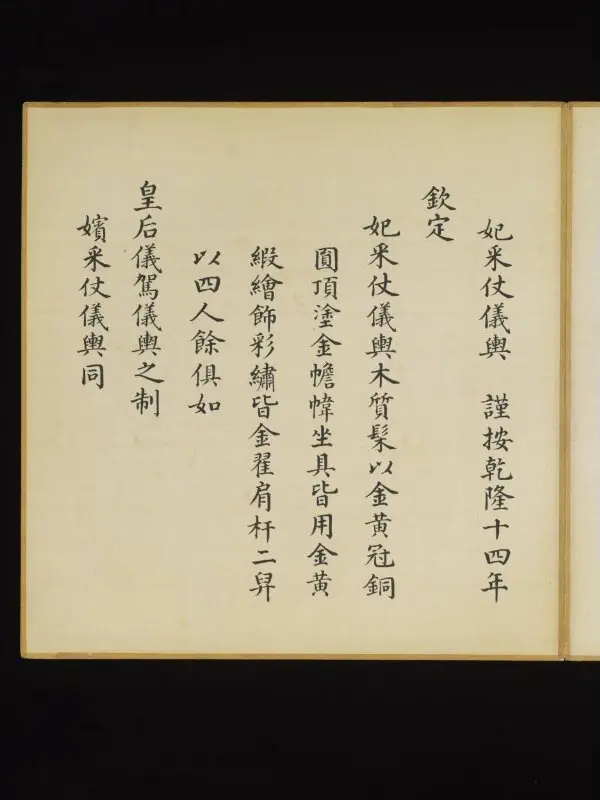 妃采仗儀輿　謹按乾隆十四年
欽定
妃采仗儀輿木質髹以金黃冠銅
圓頂塗金幨幃坐具皆用金黃
緞繪飾彩繡皆金翟肩杆二舁
以四人餘俱如
皇后儀駕儀輿之制
嬪采仗儀輿同